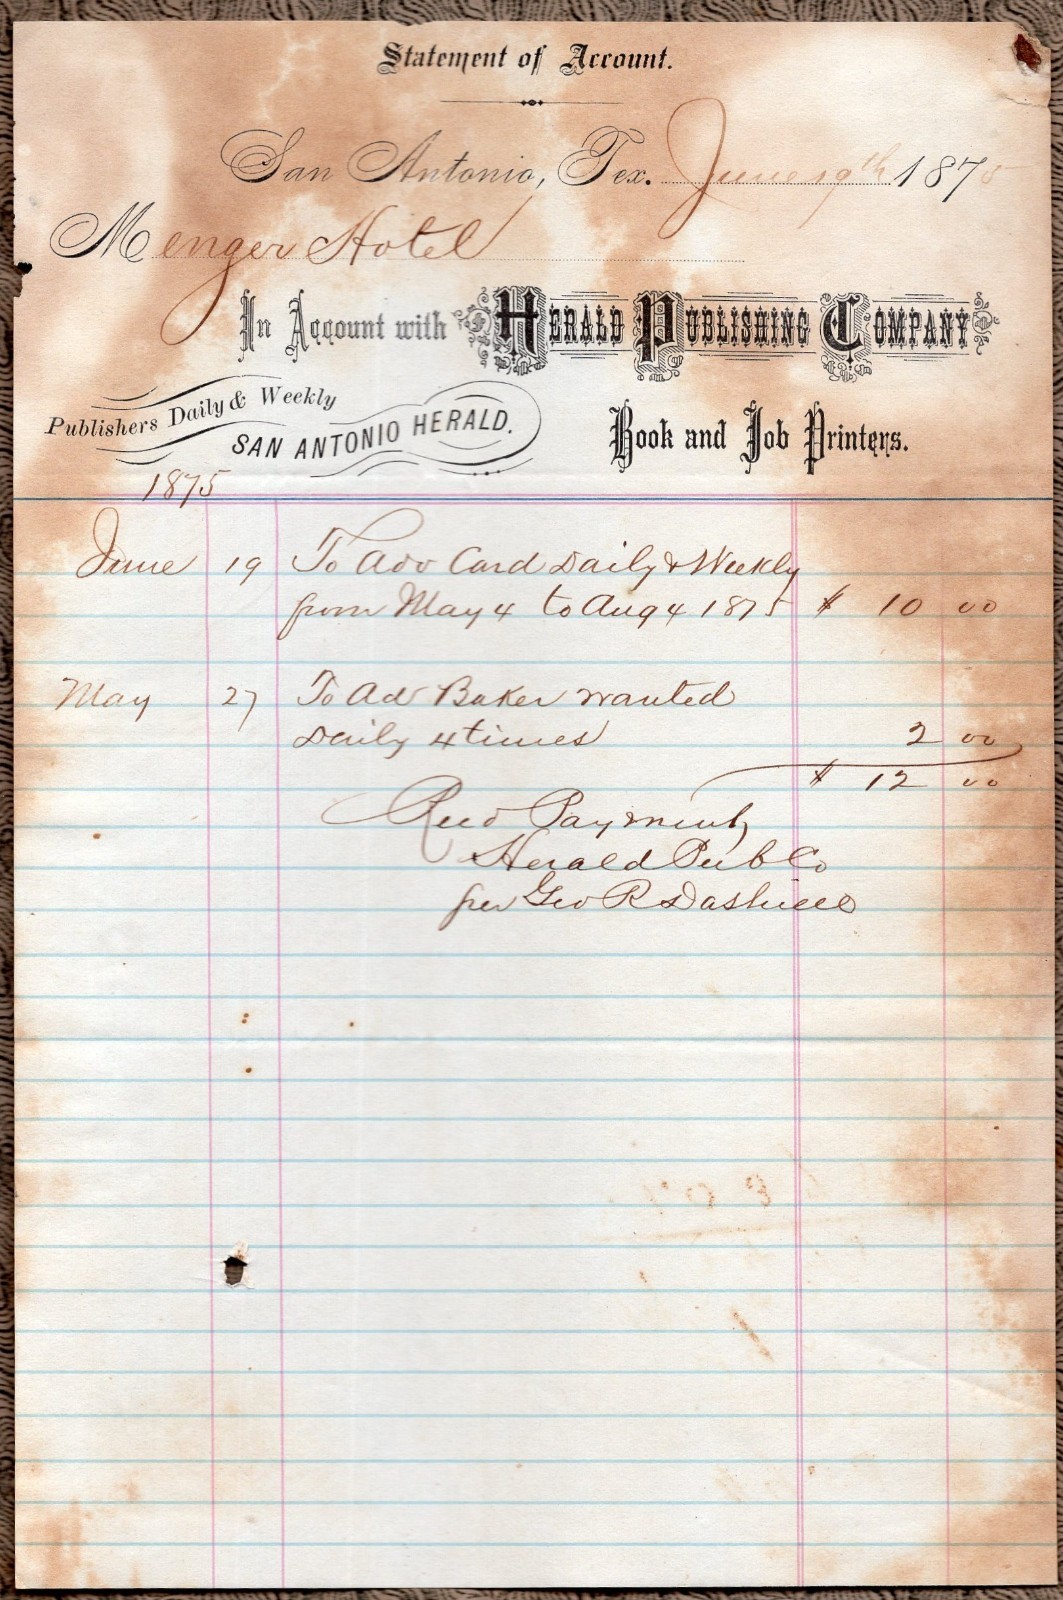 Statement of Account.
San Antonio, Tex. June 19th 1875
Menger Hotel
In Account with Herald Publishing Company
Publishers Daily & Weekly
SAN ANTONIO HERALD.
Book and Job Printers.
1875
June 19 To Adv Card Daily & Weekly
from May 4 to Aug 4 1875 $ 10 00
May 27 To Ad Baker wanted
Daily 4 times 2 00
$ 12 00
Recd Payment
Herald Pub Co
per Geo R Dashiell